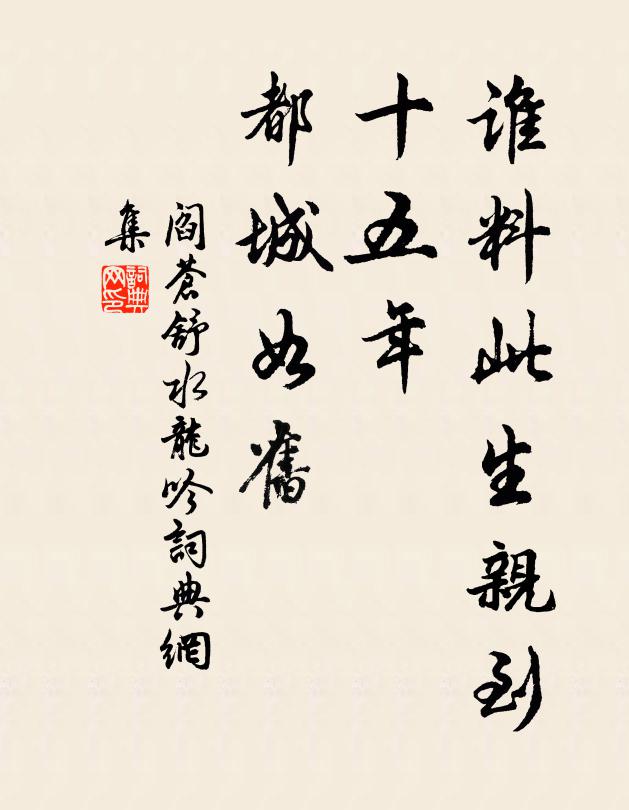 誰料此生親到
十五年
都城如舊
閻蒼舒水龍吟詞典網
集
詞典網印